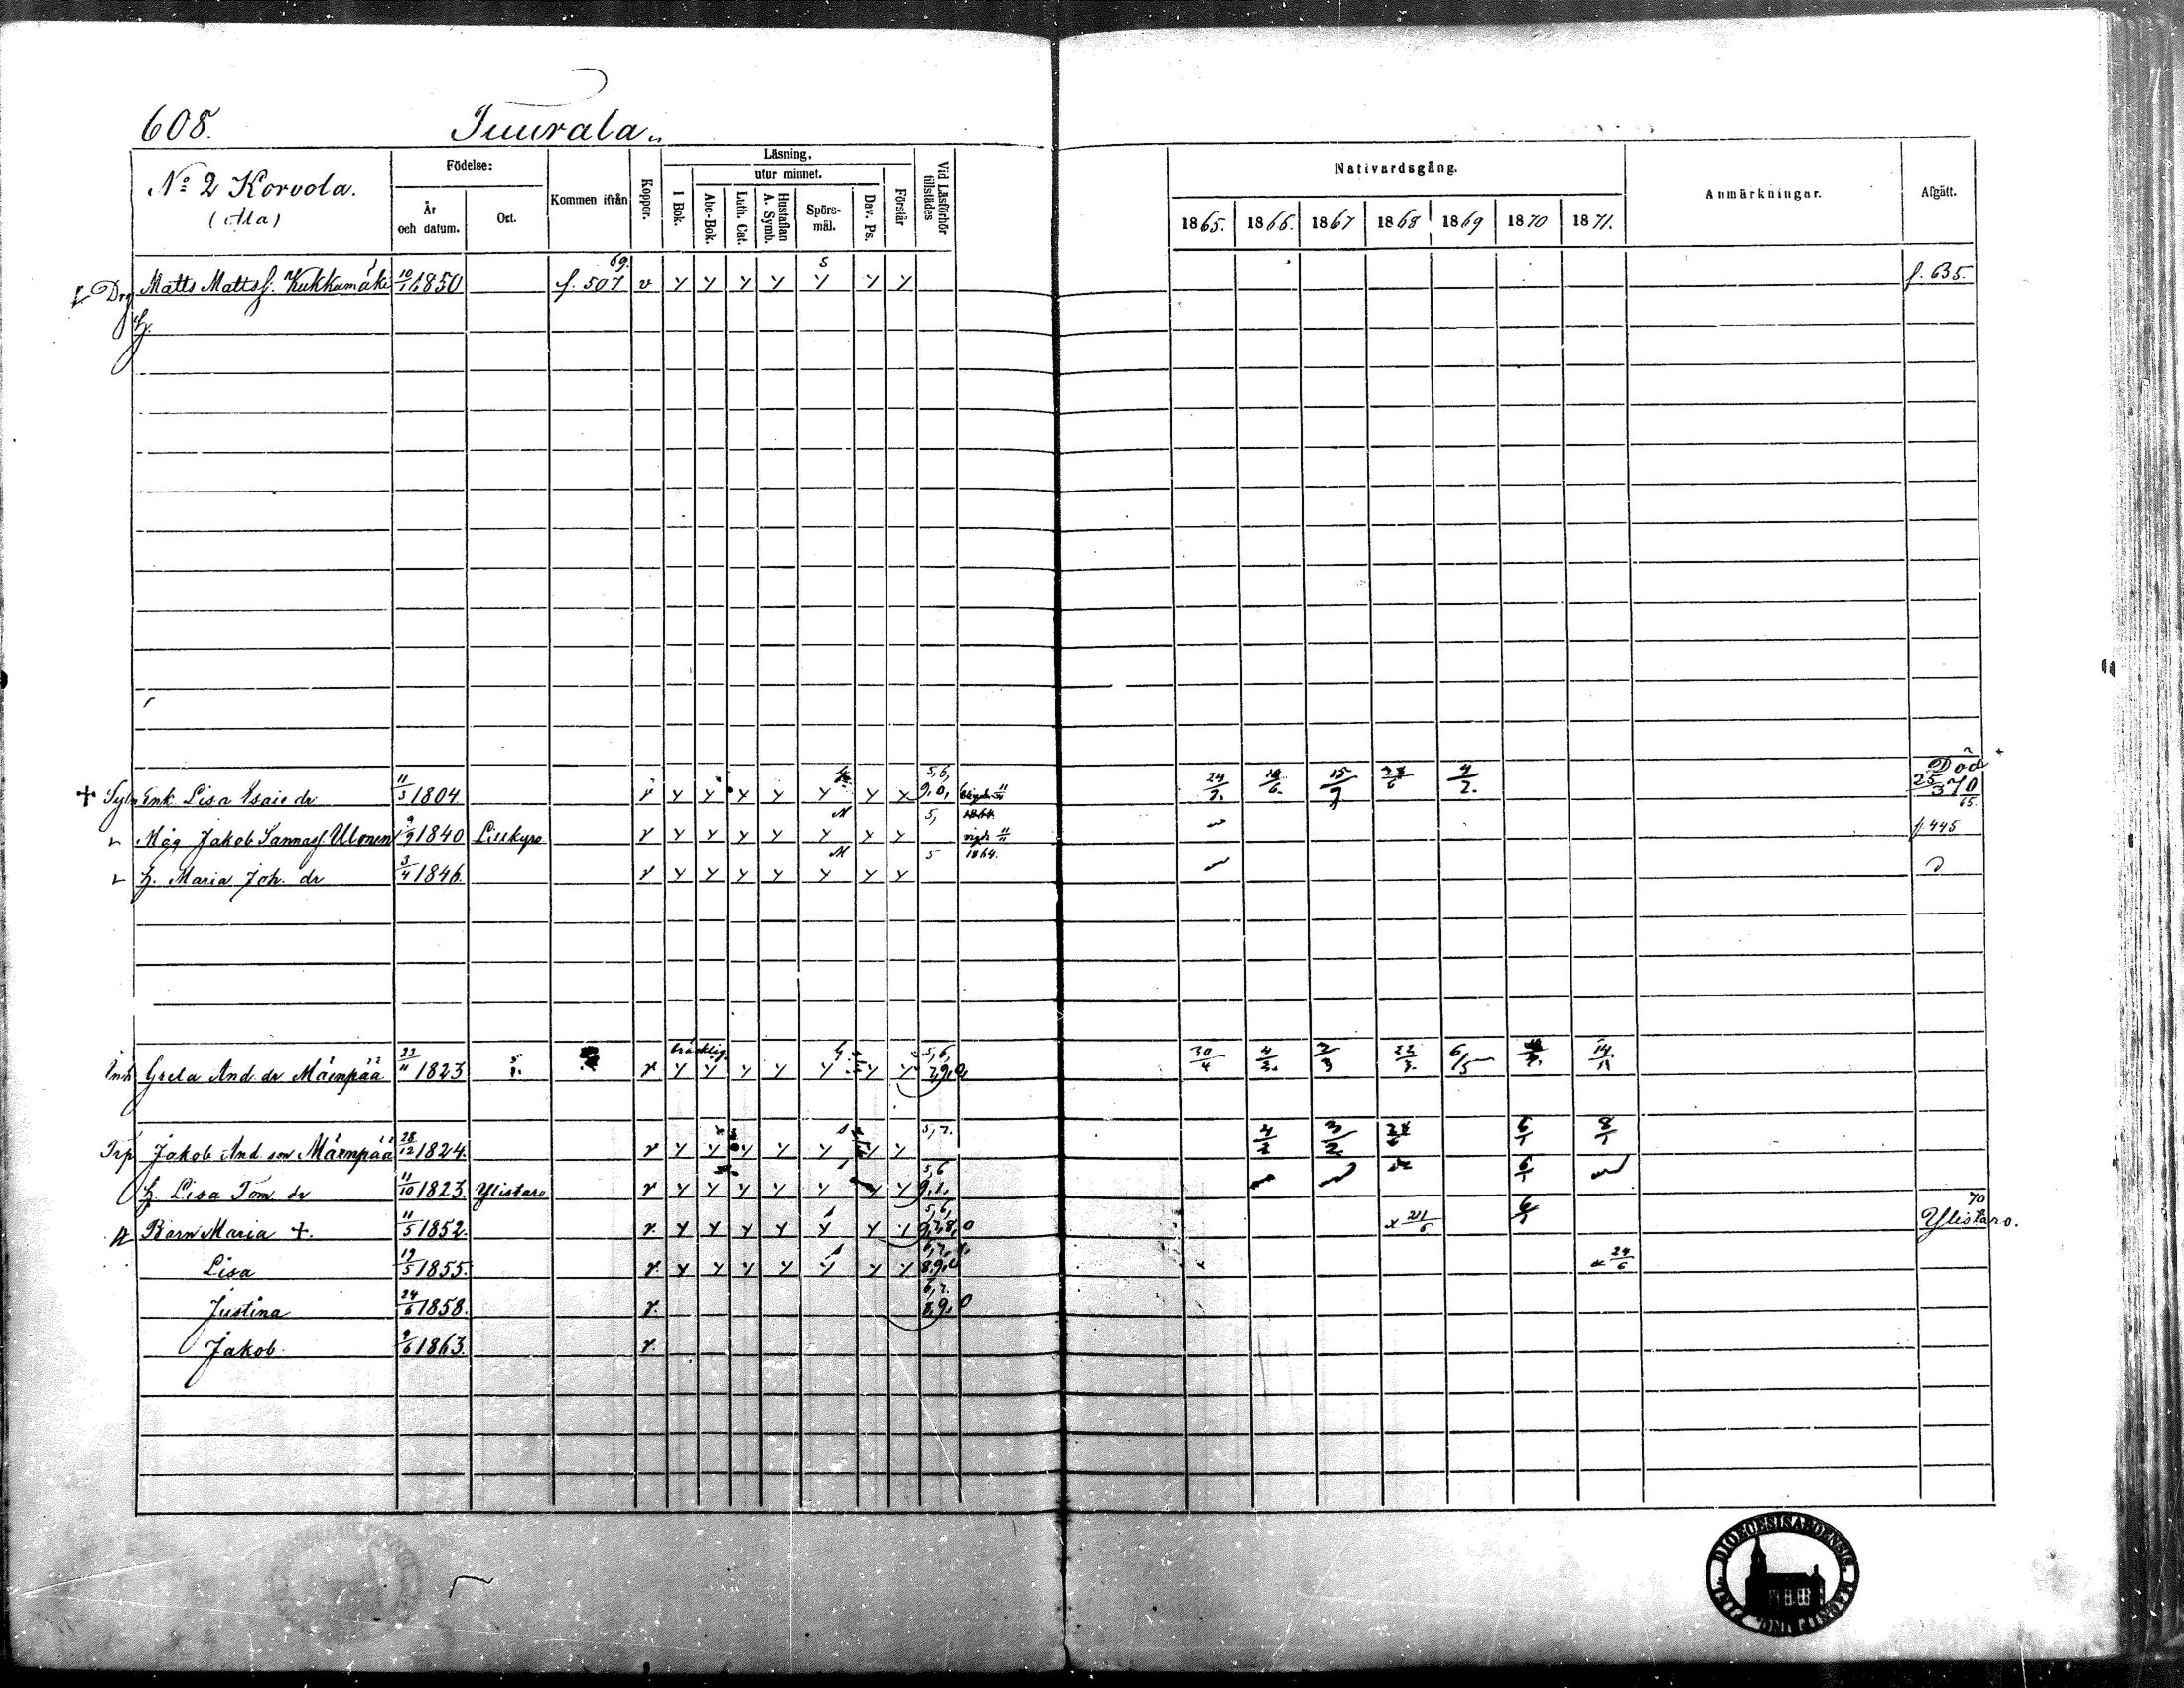 608. Tuurala.
No 2 Korvola.
(Ala)
Födelse:
År och datum.
Ort.
Kommen ifrån
Koppor.
Läsning,
I Bok.
utur minnet.
Abc-Bok.
Luth. Cat.
Hustaflan A. Symb.
Spörsmål.
Dav. Ps.
Förstår
Vid Läsförhör tillstädes
Nattvardsgång.
1865. 1866. 1867 1868 1869 1870 1871.
Anmärkningar.
Afgått.
Drg Matts Mattsf. Kukkamäki 10/1 1850 69. f. 507 v y y y y s y y y f. 635.
H.
+ Sytn. Enk. Lisa Isaie dr 11/3 1804. v y y y y y y y 5, 6, 9, 0, 24/9. 15/9 4/2. Död 25/3 70
65.
Måg Jakob Sannasf. Ulonen 9/9 1840 Lillkyro v y y y y M y y y 5, vigde 11/11 f. 445
H. Maria Joh. dr 3/4 1846. v y y y y M y y y 5 1864.
Inh Greta And. dr Mäenpää 23/11 1823 v bräcklig y y y y y y y 5, 6, 7, 9, 0, 30/4 4/2. 2/3 22/3. 6/5 14/11
Trp Jakob And. son Mäenpää 28/12 1824. v y y y y y y y 5, 7. 4/2 3/2. 6/1 8/1
H. Lisa Tom. dr 11/10 1823. Ylistaro v y y y y y y y 5, 6 9, 1. 6/1
Barn Maria +. 11/5 1852. v. y y y y y y y 5, 6, 9, 7, 8, 0 x 21/6 6/1 70 Ylistaro.
Lisa 19/5 1855. v. y y y y y y y 6, 7, 1. 8, 9, 0 x 24/6
Justina 24/6 1858. v. 6, 7. 8, 9, 0
Jakob. 9/6 1863. v.
DIOECESIS ABOENSIS. MAGNI DUC. FINL.